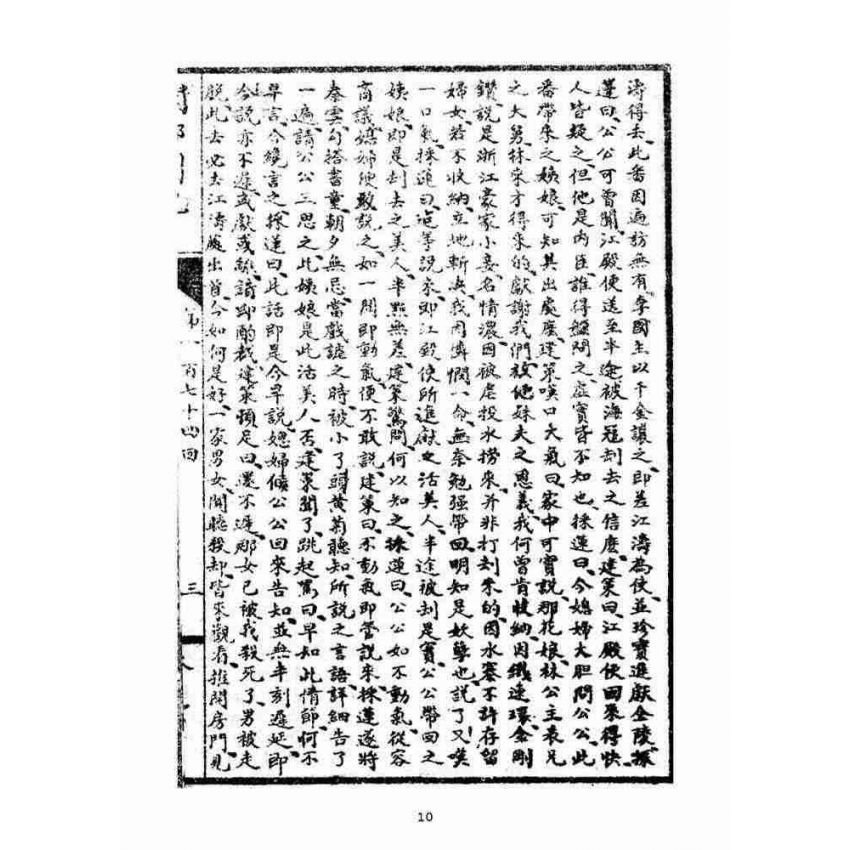 濤得去、此番因遍訪無有、李國主以千金讓之、即差江濤為使、並珍寶進獻金陵、採
蓮曰、公公可曾聞江殿使送至半途、被海寇刦去之信麽、建策曰、江殿使回來得快、
人皆疑之、但他是內臣、誰得盤問之、虛實皆不知也、採蓮曰、今媳婦大胆問公公、此
番帶來之姨娘、可知其出處麽、建策嘆口大氣曰、家中可實說、那花娘、林公主表兄
之大舅、林宋才得來的、獻謝我們放他妹夫之恩義、我何曾肯收納、因繼速環、金剛
鑽說是浙江豪家小妾、名情濃、因被虐投水撈來、并非打刦來的、因水寨不許存留
婦女、若不收納、立地斬決、我因憐憫一命、無奈勉强帶回、明知是妖孽也、說了又嘆
一口氣、採蓮曰、這等說來、即江殿使所進獻之活美人、半途被刦是實、公公帶回之
姨娘、即是刦去之美人、半點無差、建策驚問何以知之、採蓮曰、公公如不動氣、從容
商議、媳婦便敢說之、如一聞即動氣、便不敢說、建策曰、不動氣、即管說來、採蓮遂將
秦雲勾搭書童、朝夕無忌、當戲謔之時、被小了頭黃菊聽知、所說之言語、詳細告了
一遍、請公公三思之、此姨娘是此活美人否、建策聞了、跳起罵曰、早知此情節、何不
早言、今纔言之、採蓮曰、此話即是今早說、媳婦候公公回來告知、並無半刻遲延、即
今說、亦不遲、或獻或辭、請即酌裁、建策頓足曰、還不遲、那女已被我殺死了、男被走
脫、此去必去江濤處出首、今如何是好、一家男女聞聽殺却、皆來觀看、推開房門、見
第一百七十四回
三
10